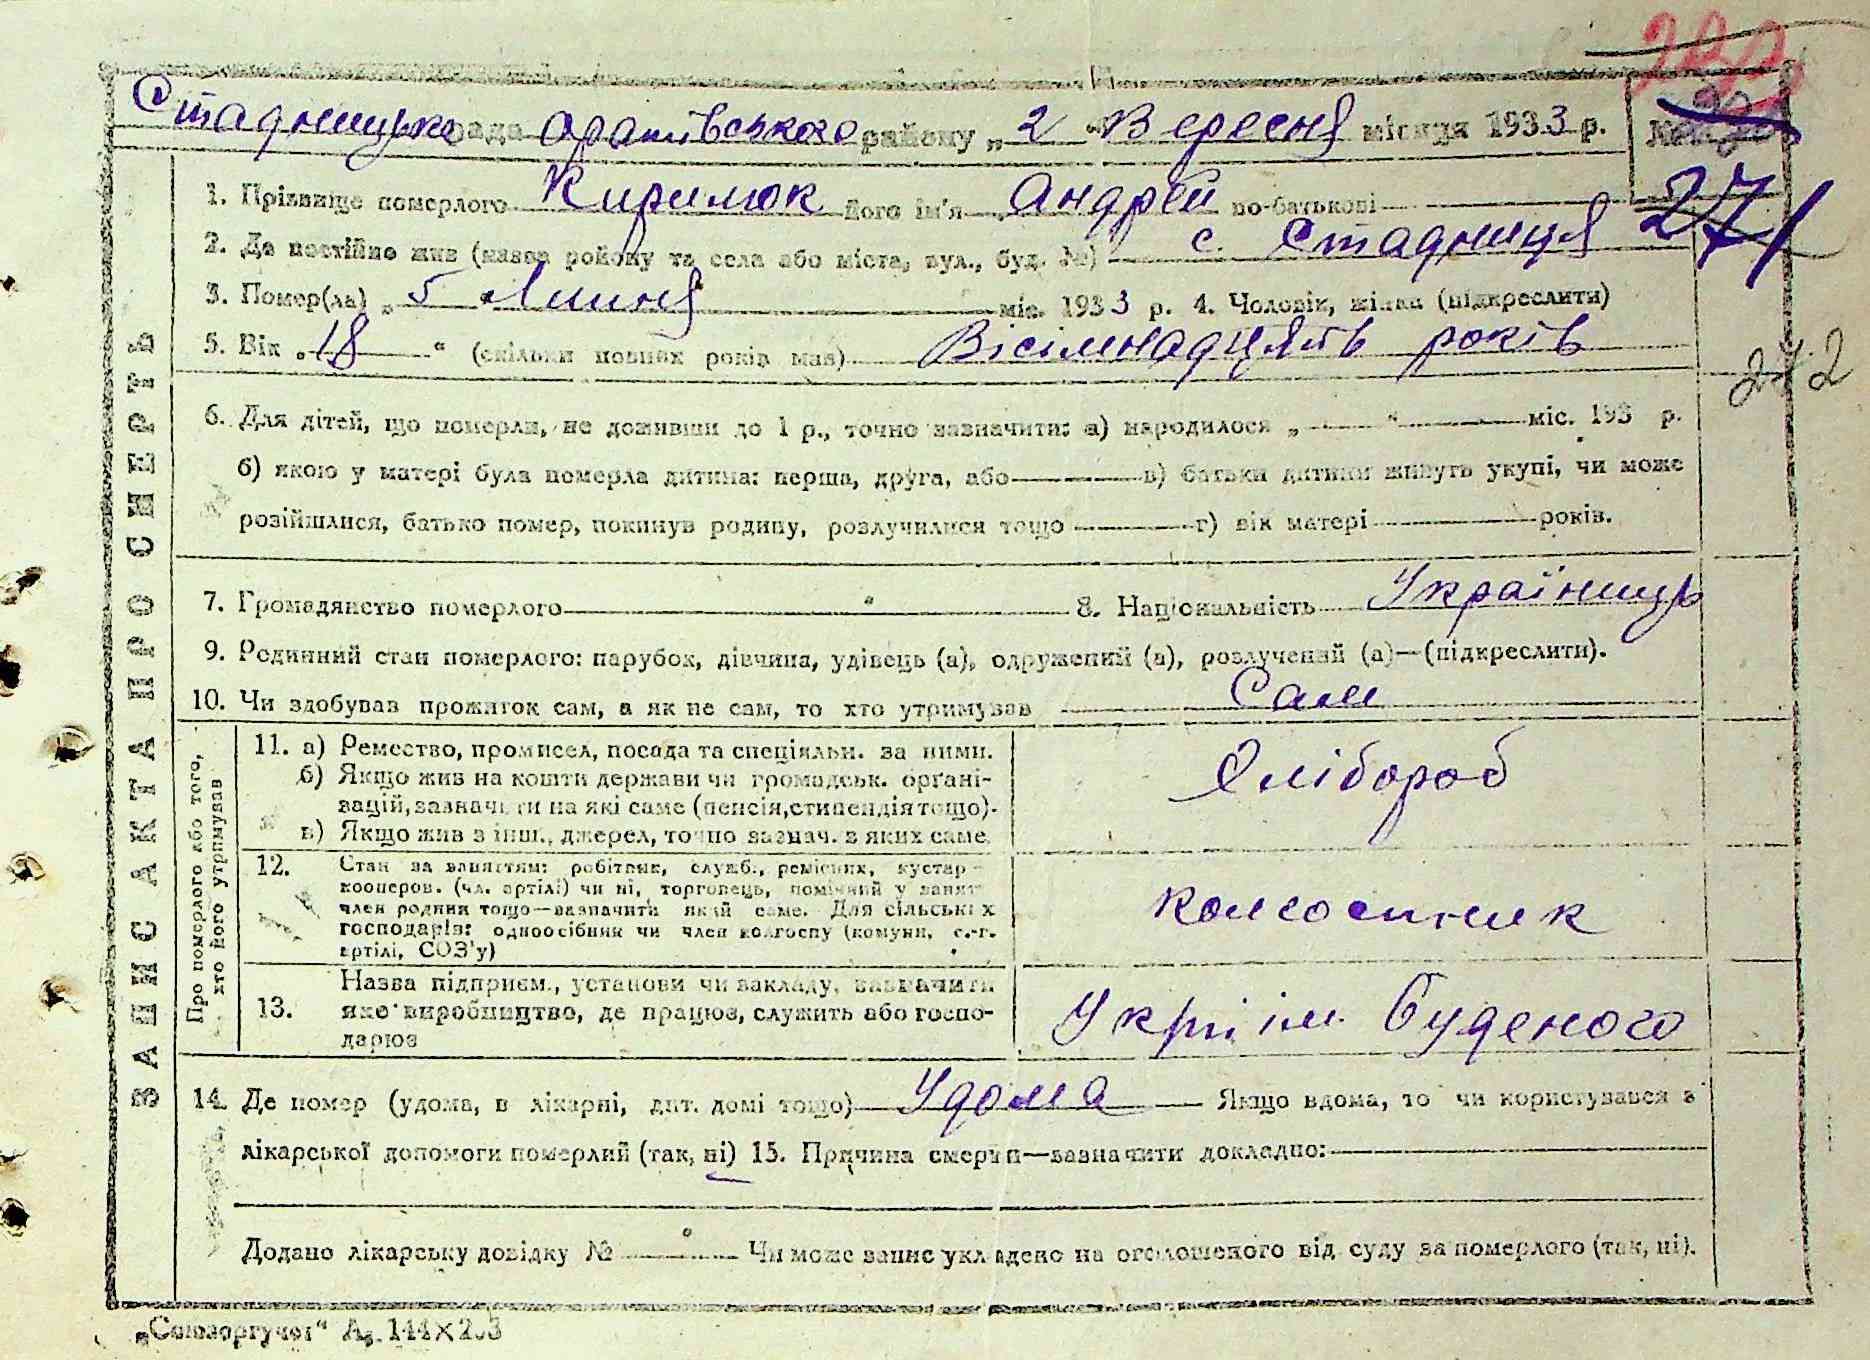 Стадницька рада Оратівського району „2" Вересня місяця 1933 р. №
271
1. Прізвище померлого Кирилюк його ім'я Андрій по-батькові
2. Де постійно жив (назва району та села або міста, вул., буд. №) с. Стадниця
3. Помер(ла) „5" Липня міс. 1933 р. 4. Чоловік, жінка (підкреслити)
5. Вік „18" (скільки повних років мав) Вісімнадцять років
272
6. Для дітей, що померли, не доживши до 1 р., точно зазначити: а) народилося „ " міс. 193 р.
б) якою у матері була померла дитина: перша, друга, або в) батьки дитини живуть укупі, чи може
розійшлися, батько помер, покинув родину, розлучилися тощо г) вік матері років.
7. Громадянство померлого 8. Національність Українець
9. Родинний стан померлого: парубок, дівчина, удівець (а), одружений (а), розлучений (а)—(підкреслити).
10. Чи здобував прожиток сам, а як не сам, то хто утримував Сам
ЗАПИС АКТА ПРО СМЕРТЬ
Про померлого або того,
хто його утримував
11. а) Ремество, промисел, посада та спеціяльн. за ними.
б) Якщо жив на кошти держави чи громадськ. органі-
зацій, зазначити на які саме (пенсія, стипендія тощо).
в) Якщо жив з інш., джерел, точно зазнач. з яких саме.
Хлібороб
12. Стан за заняттям: робітник, служб., ремісник, кустар-
кооперов. (чл. артілі) чи ні, торговець, помічний у занят.
член родини тощо—зазначити який саме. Для сільських
господарів: одноосібник чи член колгоспу (комуни, с.-г.
артілі, СОЗ'у)
колгоспник
13. Назва підприєм., установи чи закладу, зазначити
яке виробництво, де працює, служить або госпо-
дарює
ім. Буденого
14. Де помер (удома, в лікарні, дит. домі тощо) Удома Якщо вдома, то чи користувався з
лікарської допомоги померлий (так, ні) 15. Причина смерти—зазначити докладно:
Додано лікарську довідку № Чи може запис укладено на оголошеного від суду за померлого (так, ні).
„Союзоргучет"